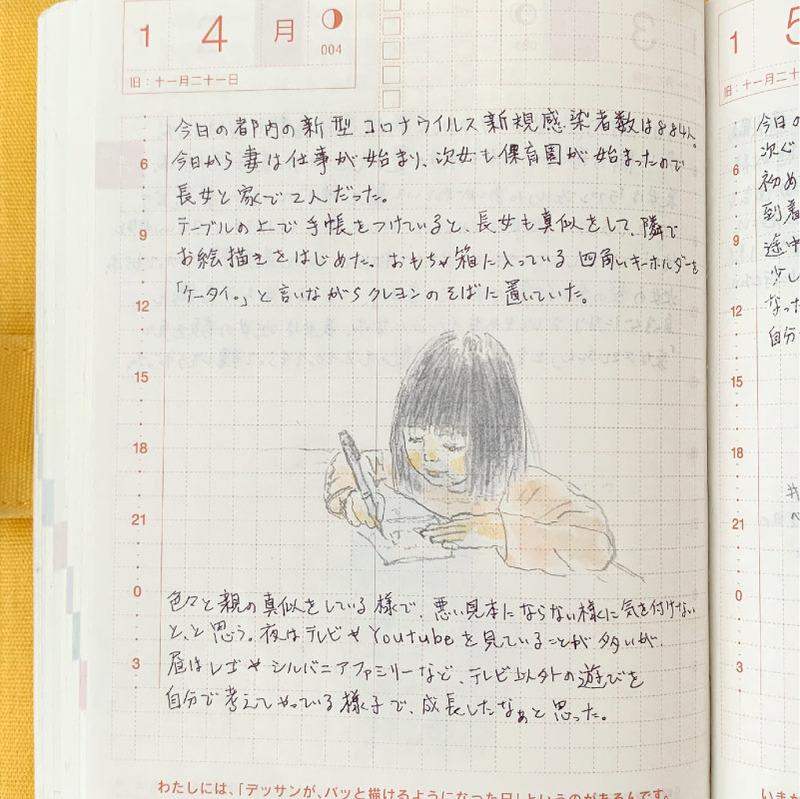 1 4 月
004
旧：十一月二十一日
今日の都内の新型コロナウイルス新規感染者数は884人。
今日から妻は仕事が始まり、次女も保育園が始まったので
長女と家で2人だった。
テーブルの上で手帳をつけていると、長女も真似をして、隣で
お絵描きをはじめた。おもちゃ箱に入っている四角いキーホルダーを
「ケータイ。」と言いながらクレヨンのそばに置いていた。
6
9
12
15
18
21
0
3
色々と親の真似をしている様で、悪い見本にならない様に気を付けない
と、と思う。夜はテレビやYoutubeを見ていることが多いが、
昼はレゴやシルバニアファミリーなど、テレビ以外の遊びを
自分で考えてやっている様子で、成長したなぁと思った。
わたしには、「デッサンが、パッと描けるようになった日」というのがあるんです。
1 5
旧：十一月二十
今日の
次ぐ
初め
到着
途中
少し
なった
自分
6
9
12
15
18
21
0
3
いまが